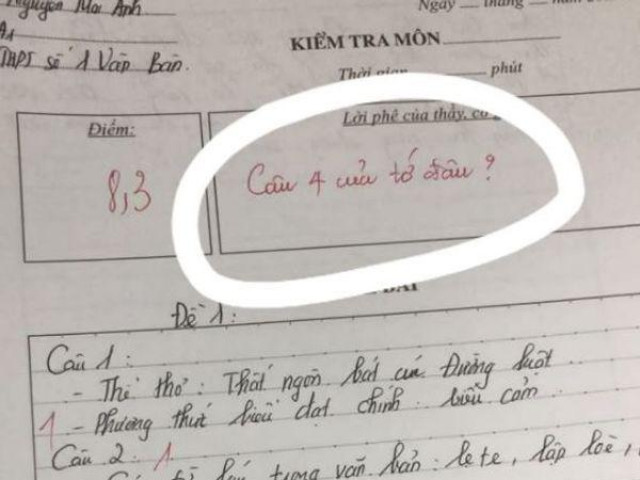 Nguyễn Mai Anh
A1
THPT số 1 Văn Bàn.
Ngày ___ tháng ___ năm
KIỂM TRA MÔN
Thời gian ___ phút
Điểm:
Lời phê của thầy, cô
8,3
Câu 4 của tớ đâu?
BÀI
Đề 1:
Câu 1:
- Thể thơ: Thất ngôn bát cú Đường luật
1 - Phương thức biểu đạt chính: biểu cảm
Câu 2: 1
từ láy trong văn bản: le te, lập loè,